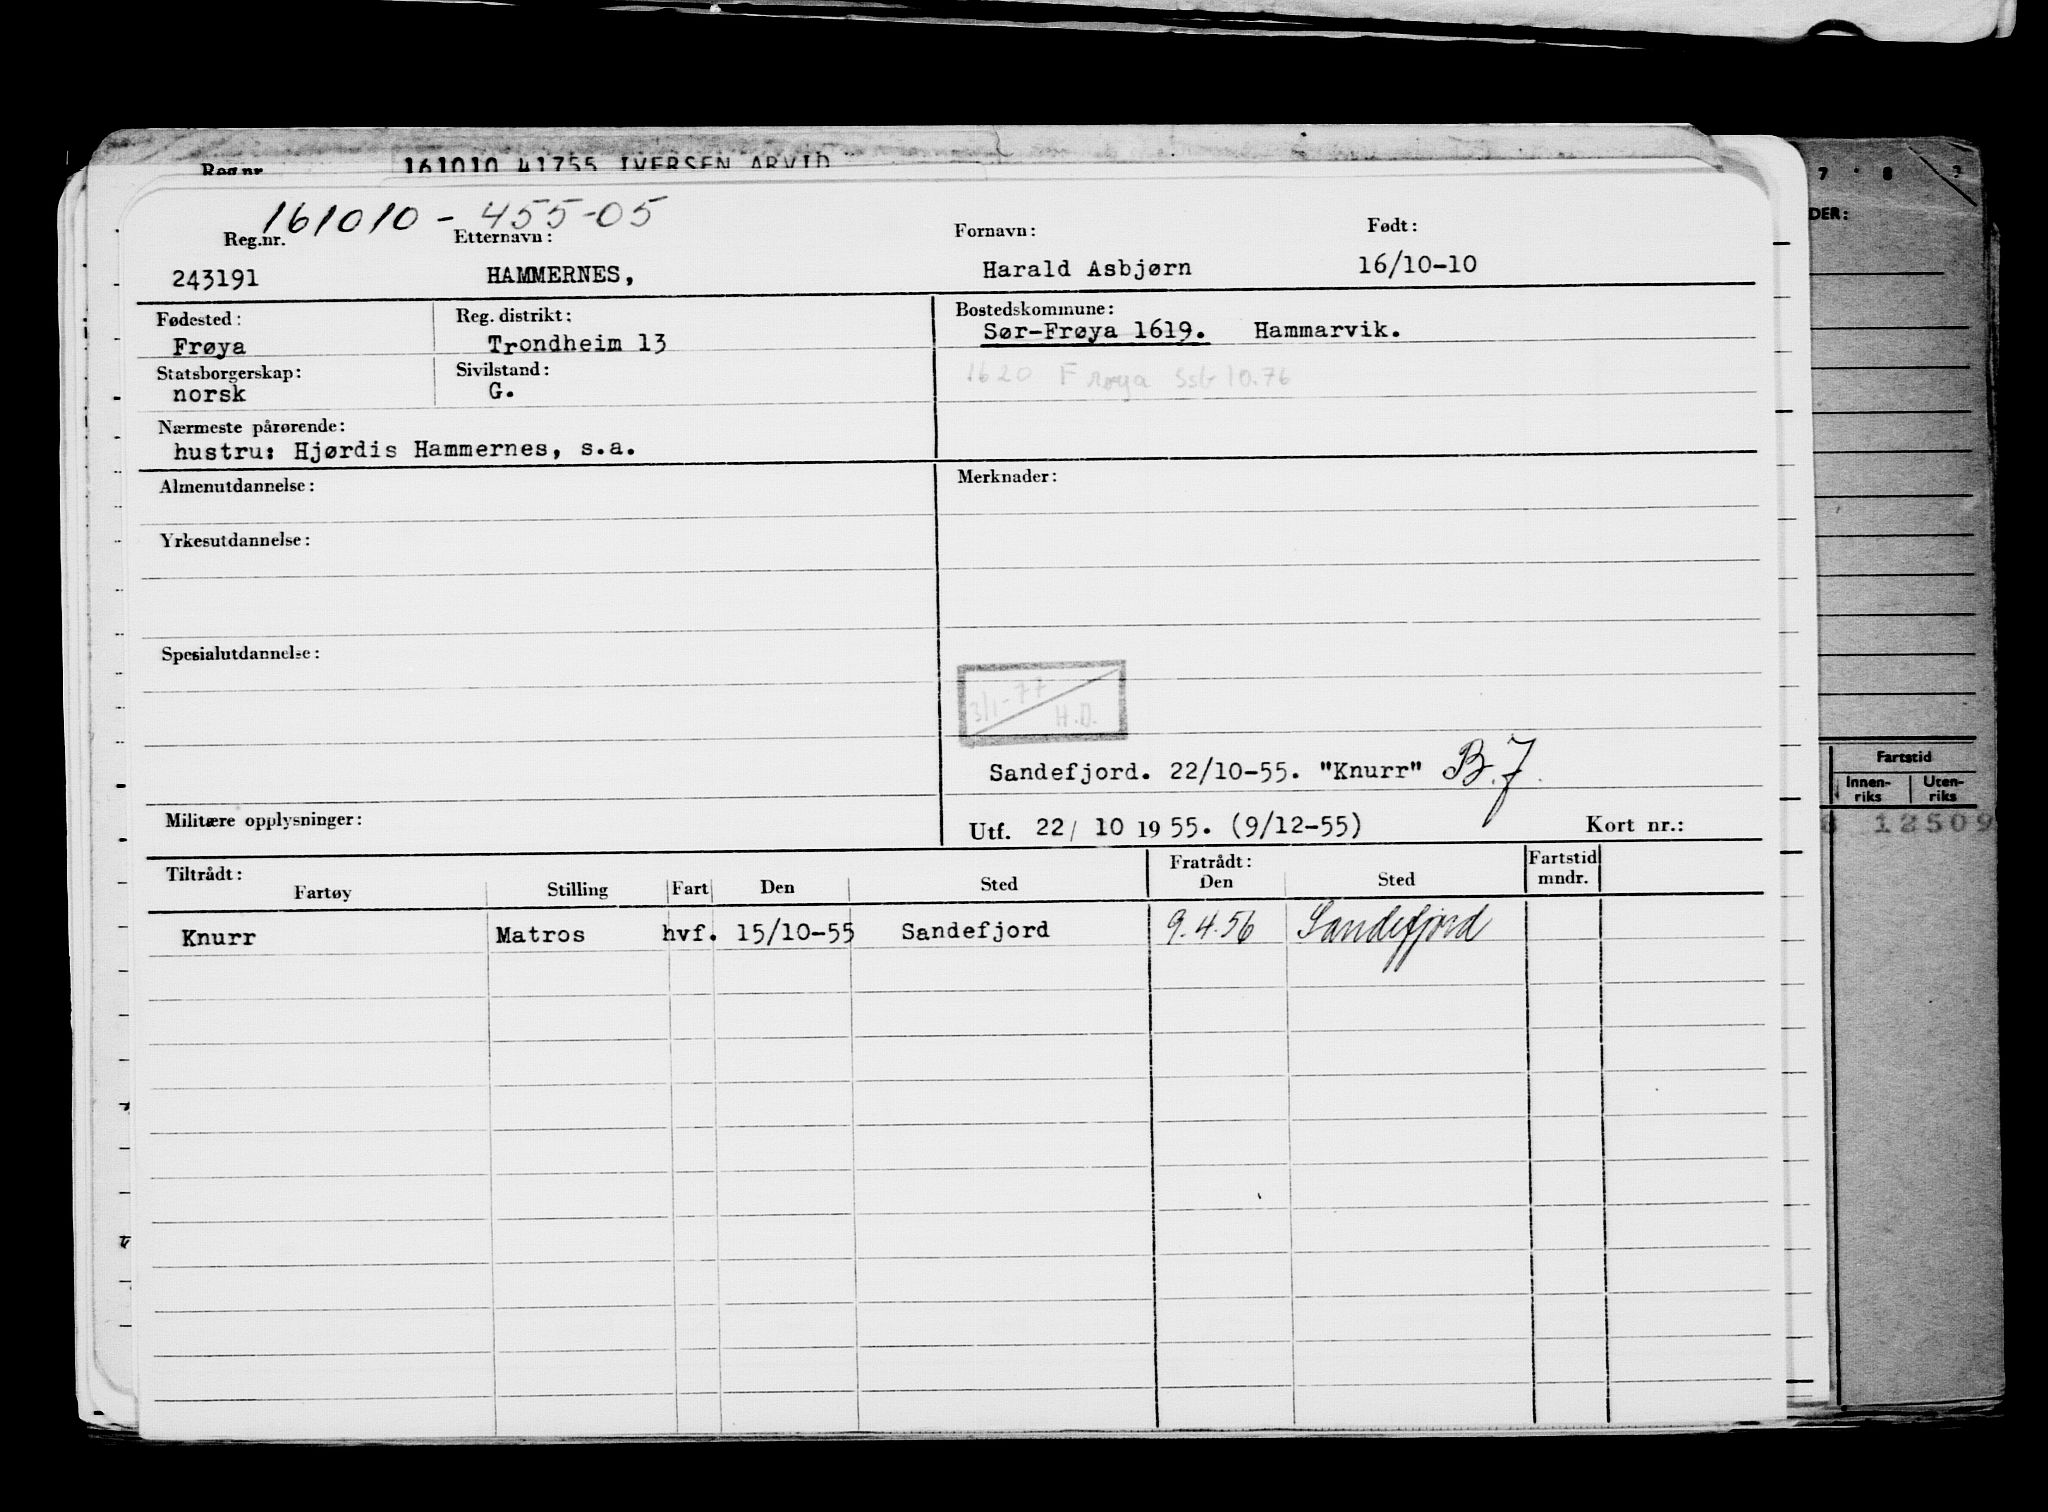 Reg.nr. 161010 41755 IVERSEN ARVID
7 8 9
DER:
161010 - 455-05
Reg.nr. Etternavn: Fornavn: Født:
243191 HAMMERNES, Harald Asbjørn 16/10-10
Fødested: Reg. distrikt: Bostedskommune:
Frøya Trondheim 13 Sør-Frøya 1619. Hammarvik.
Statsborgerskap: Sivilstand:
norsk G. 1620 Frøya Ssb 10.76
Nærmeste pårørende:
hustru: Hjørdis Hammernes, s.a.
Almenutdannelse: Merknader:
Yrkesutdannelse:
Spesialutdannelse:
3/1-77
H.D.
Sandefjord. 22/10-55. "Knurr" B.J.
Militære opplysninger: Utf. 22/ 10 1955. (9/12-55) Kort nr.:
Fartstid
Innen-riks Uten-riks
12509
Tiltrådt: Fratrådt: Fartstid
Fartøy Stilling Fart Den Sted Den Sted mndr.
Knurr Matros hvf. 15/10-55 Sandefjord 9.4.56 Sandefjord